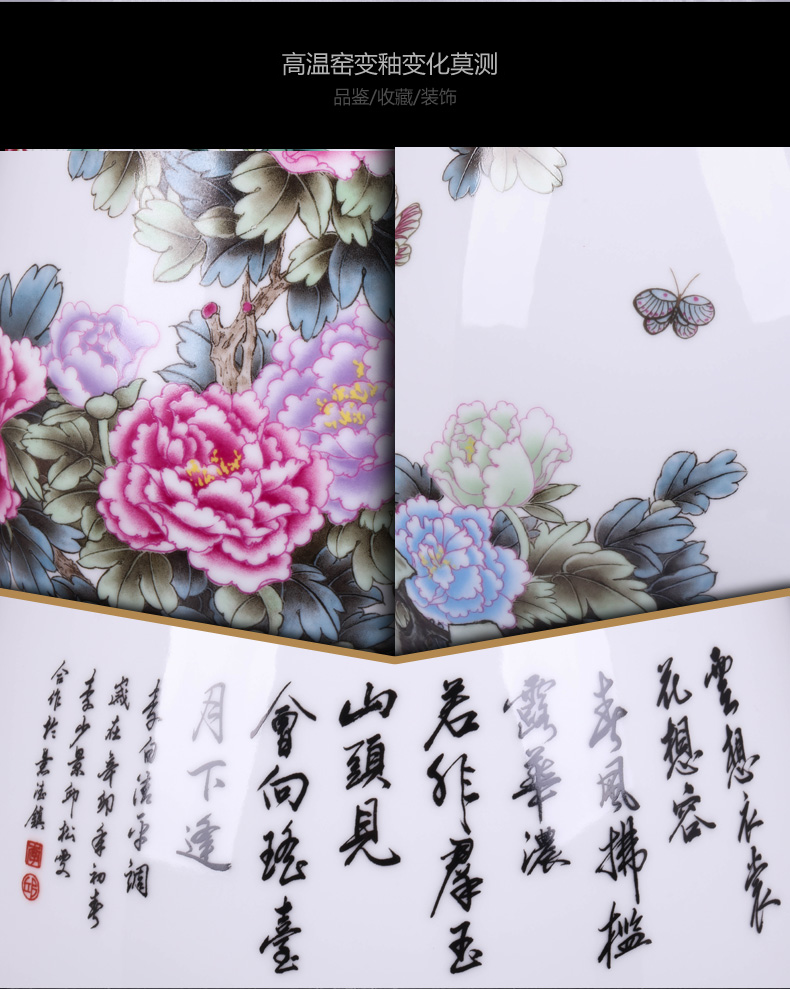 高温窑变釉变化莫测
品鉴/收藏/装饰
雲想衣裳
花想容
春風拂檻
露華濃
若非羣玉
山頭見
會向瑤臺
月下逢
李白清平調
歲在辛卯年初春
李少景邱松雯
合作於景德鎮